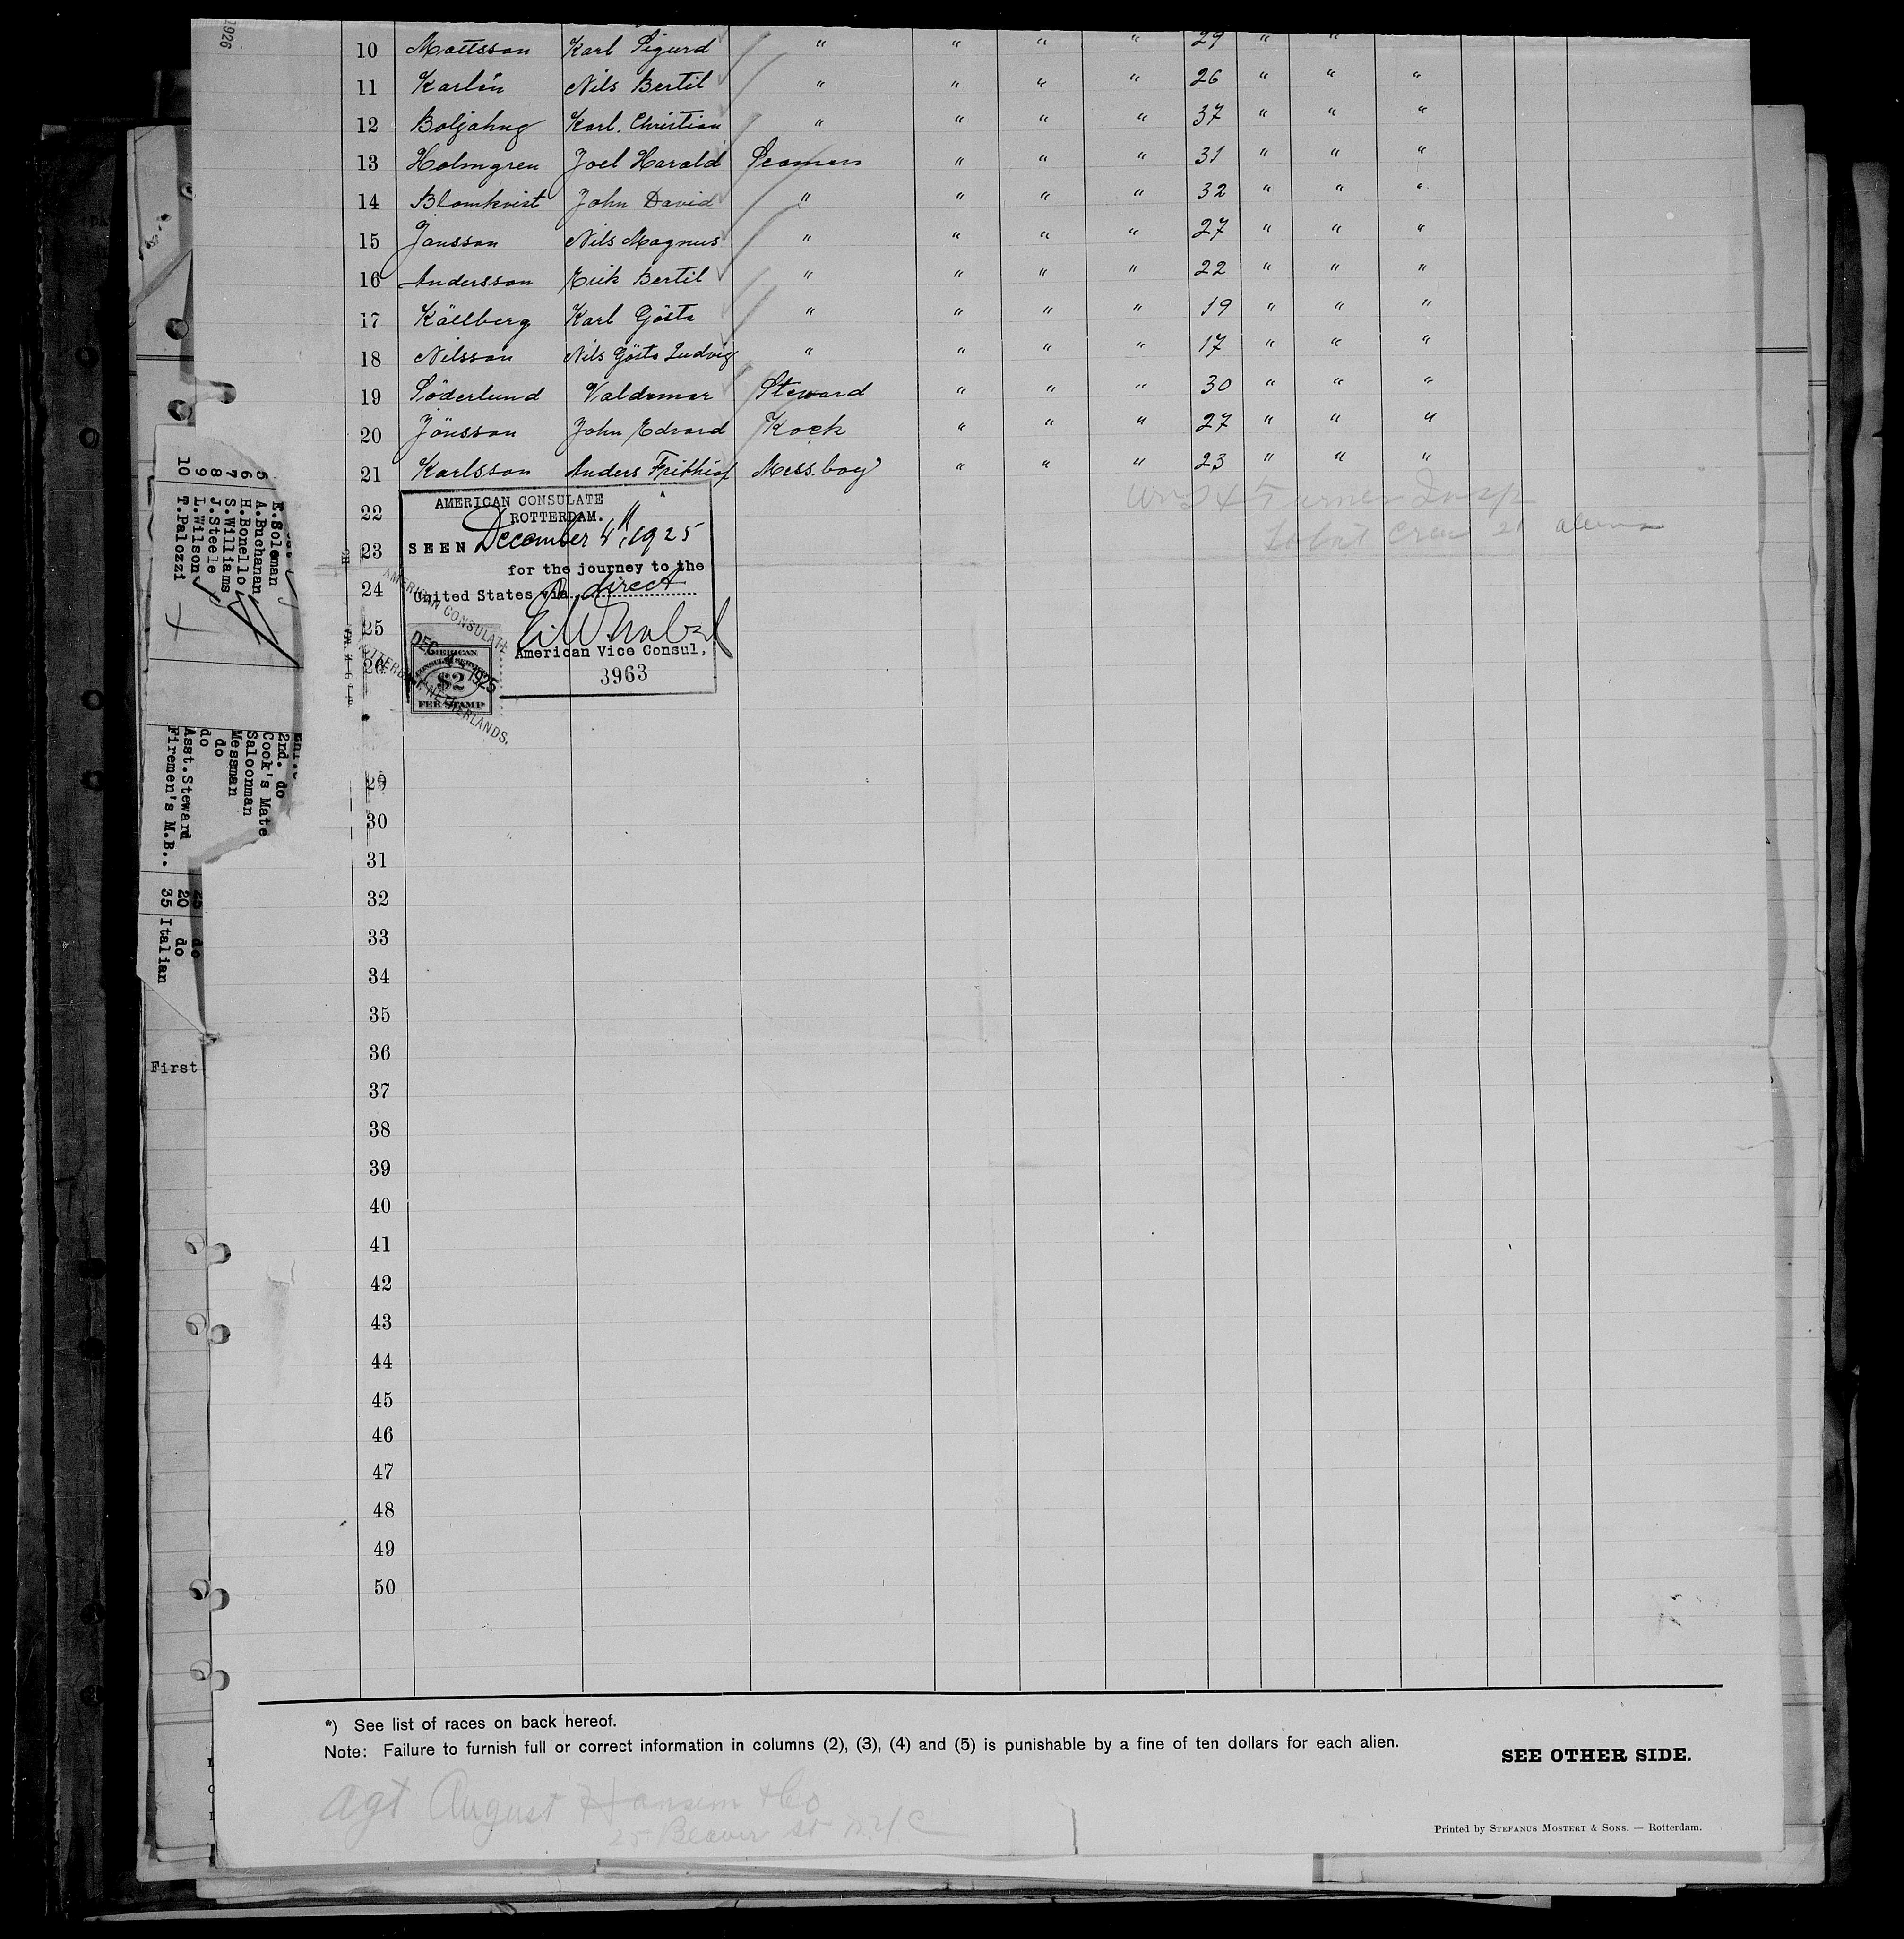 1926
10 Mattsson Karl Sigurd " " " " 29 " "
11 Karlén Nils Bertil " " " " 26 " " "
12 Boljahng Karl. Christian " " " " 37 " " "
13 Holmgren Joel Harald Seamen " " " 31 " " "
14 Blomkvist John David " " " " 32 " " "
15 Jansson Nils Magnus " " " " 27 " " "
16 Andersson Erik Bertil " " " " 22 " " "
17 Källberg Karl Gösta " " " " 19 " " "
18 Nilsson Nils Gösta Ludvig " " " " 17 " " "
19 Söderlund Valdemar Steward " " " 30 " " "
20 Jönsson John Edvard Kock " " " 27 " " "
21 Karlsson Anders Frithiof Mess. boy " " " 23 " " "
Turner Insp
Total Crew 21 aliens
22
23
24
25
26
AMERICAN CONSULATE
ROTTERDAM.
SEEN December 4th, 1925
for the journey to the
United States via direct
American Vice Consul,
3963
AMERICAN CONSULATE
DEC 4 1925
ROTTERDAM, NETHERLANDS.
AMERICAN
CONSULAR SERVICE
$2
FEE STAMP
29
30
31
32
33
34
35
36
37
38
39
40
41
42
43
44
45
46
47
48
49
50
E.Soleman
5 A.Buchanan
6 H.Bonello
7 S.Williams
8 J.Steele
9 L.Wilson
10 T.Palozzi
2nd. do
Cook's Mate
Saloonman
Messman
do
do
Asst.Steward 20 do
Firemen's M.B.. 35 Italian
25 do
First
*) See list of races on back hereof.
Note: Failure to furnish full or correct information in columns (2), (3), (4) and (5) is punishable by a fine of ten dollars for each alien.
SEE OTHER SIDE.
Agt August Hansen & Co
25 Beaver St N.Y.C
Printed by STEFANUS MOSTERT & SONS. — Rotterdam.